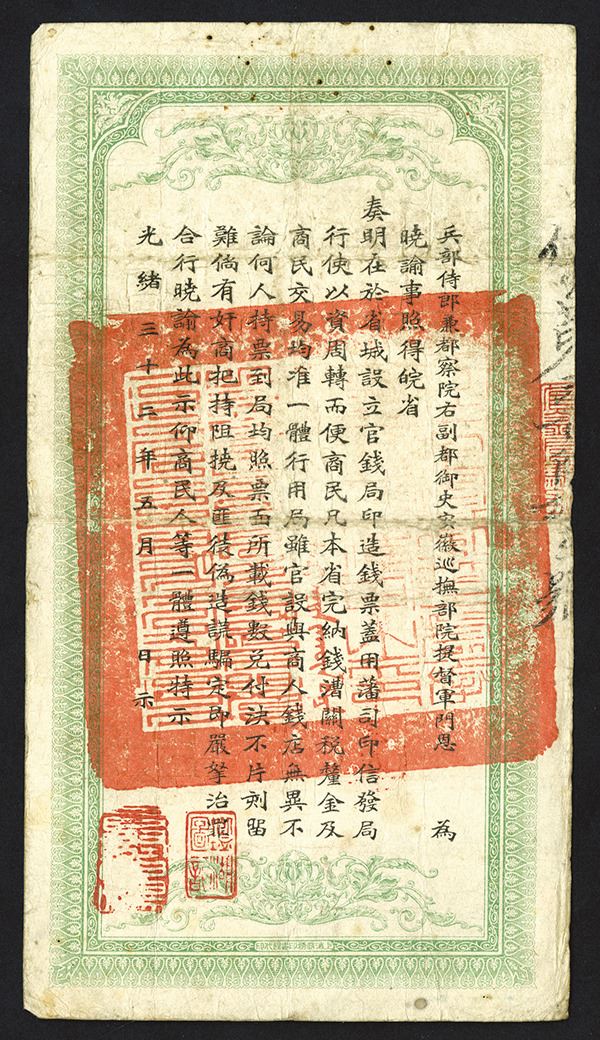 兵部侍郎兼都察院右副都御史安徽巡撫部院提督軍門恩　為
曉諭事照得皖省
奏明在於省城設立官錢局印造錢票蓋用藩司印信發局
行使以資周轉而便商民凡本省完納錢漕關稅釐金及
商民交易均准一體行用局雖官設與商人錢店無異不
論何人持票到局均照票面所載錢數兌付決不片刻留
難倘有奸商把持阻撓及匪徒偽造誆騙定即嚴拏治罪
合行曉諭為此示仰商民人等一體遵照特示
光緒三十三年五月　日示